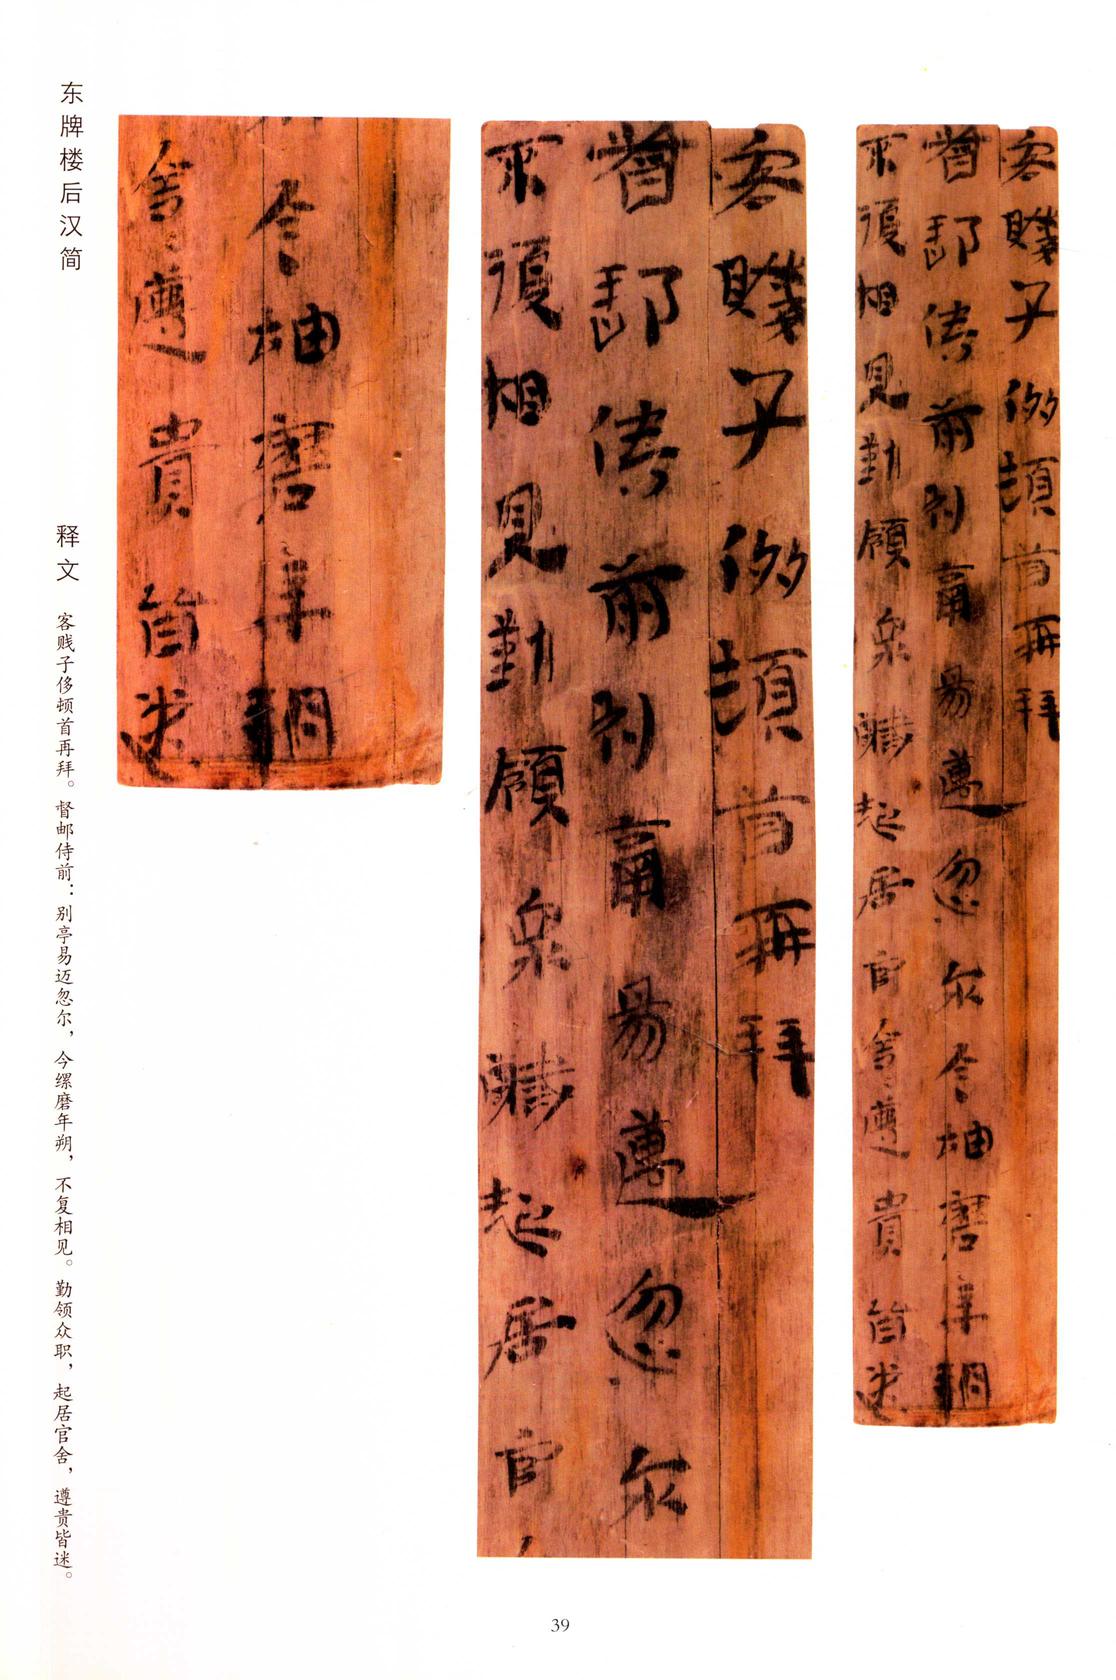 东牌楼后汉简
释文 客贱子侈顿首再拜。督邮侍前：别亭易迈忽尔，今缧磨年朔，不复相见。勤领众职，起居官舍，遵贵皆迷。
客賤子侈頓首再拜
督郵侍前別亭易邁忽尔今
磨年朔
不復相見勤領衆職起居官舍遵貴皆迷
客賤子侈頓首再拜
督郵侍前別亭易邁忽尔
不復相見勤領衆職起居官
今
磨年朔
舍遵貴皆迷
39